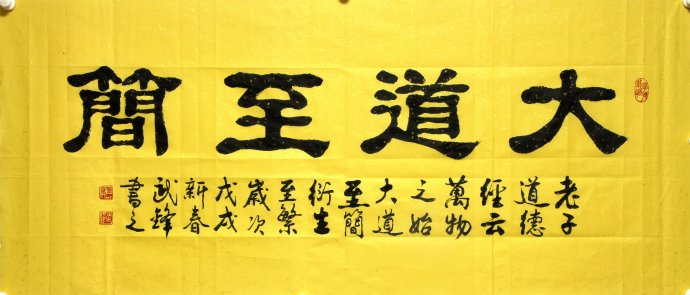 大道至簡
老子
道德
經云
萬物
之始
大道
至簡
衍生
至繁
歲次
戊戌
新春
武鋒
書之